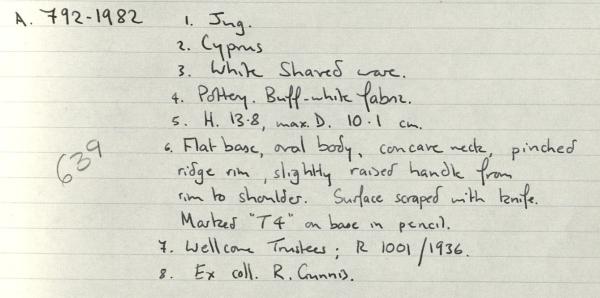 A. 792-1982
1. Jug.
2. Cyprus
3. White Shaved ware.
4. Pottery. Buff-white fabric.
5. H. 13.8, max. D. 10.1 cm.
6. Flat base, oval body, concave neck, pinched
ridge rim, slightly raised handle from
rim to shoulder. Surface scraped with knife.
Marked "T4" on base in pencil.
639
7. Wellcome Trustees; R 1001/1936.
8. Ex coll. R. Gunnis.